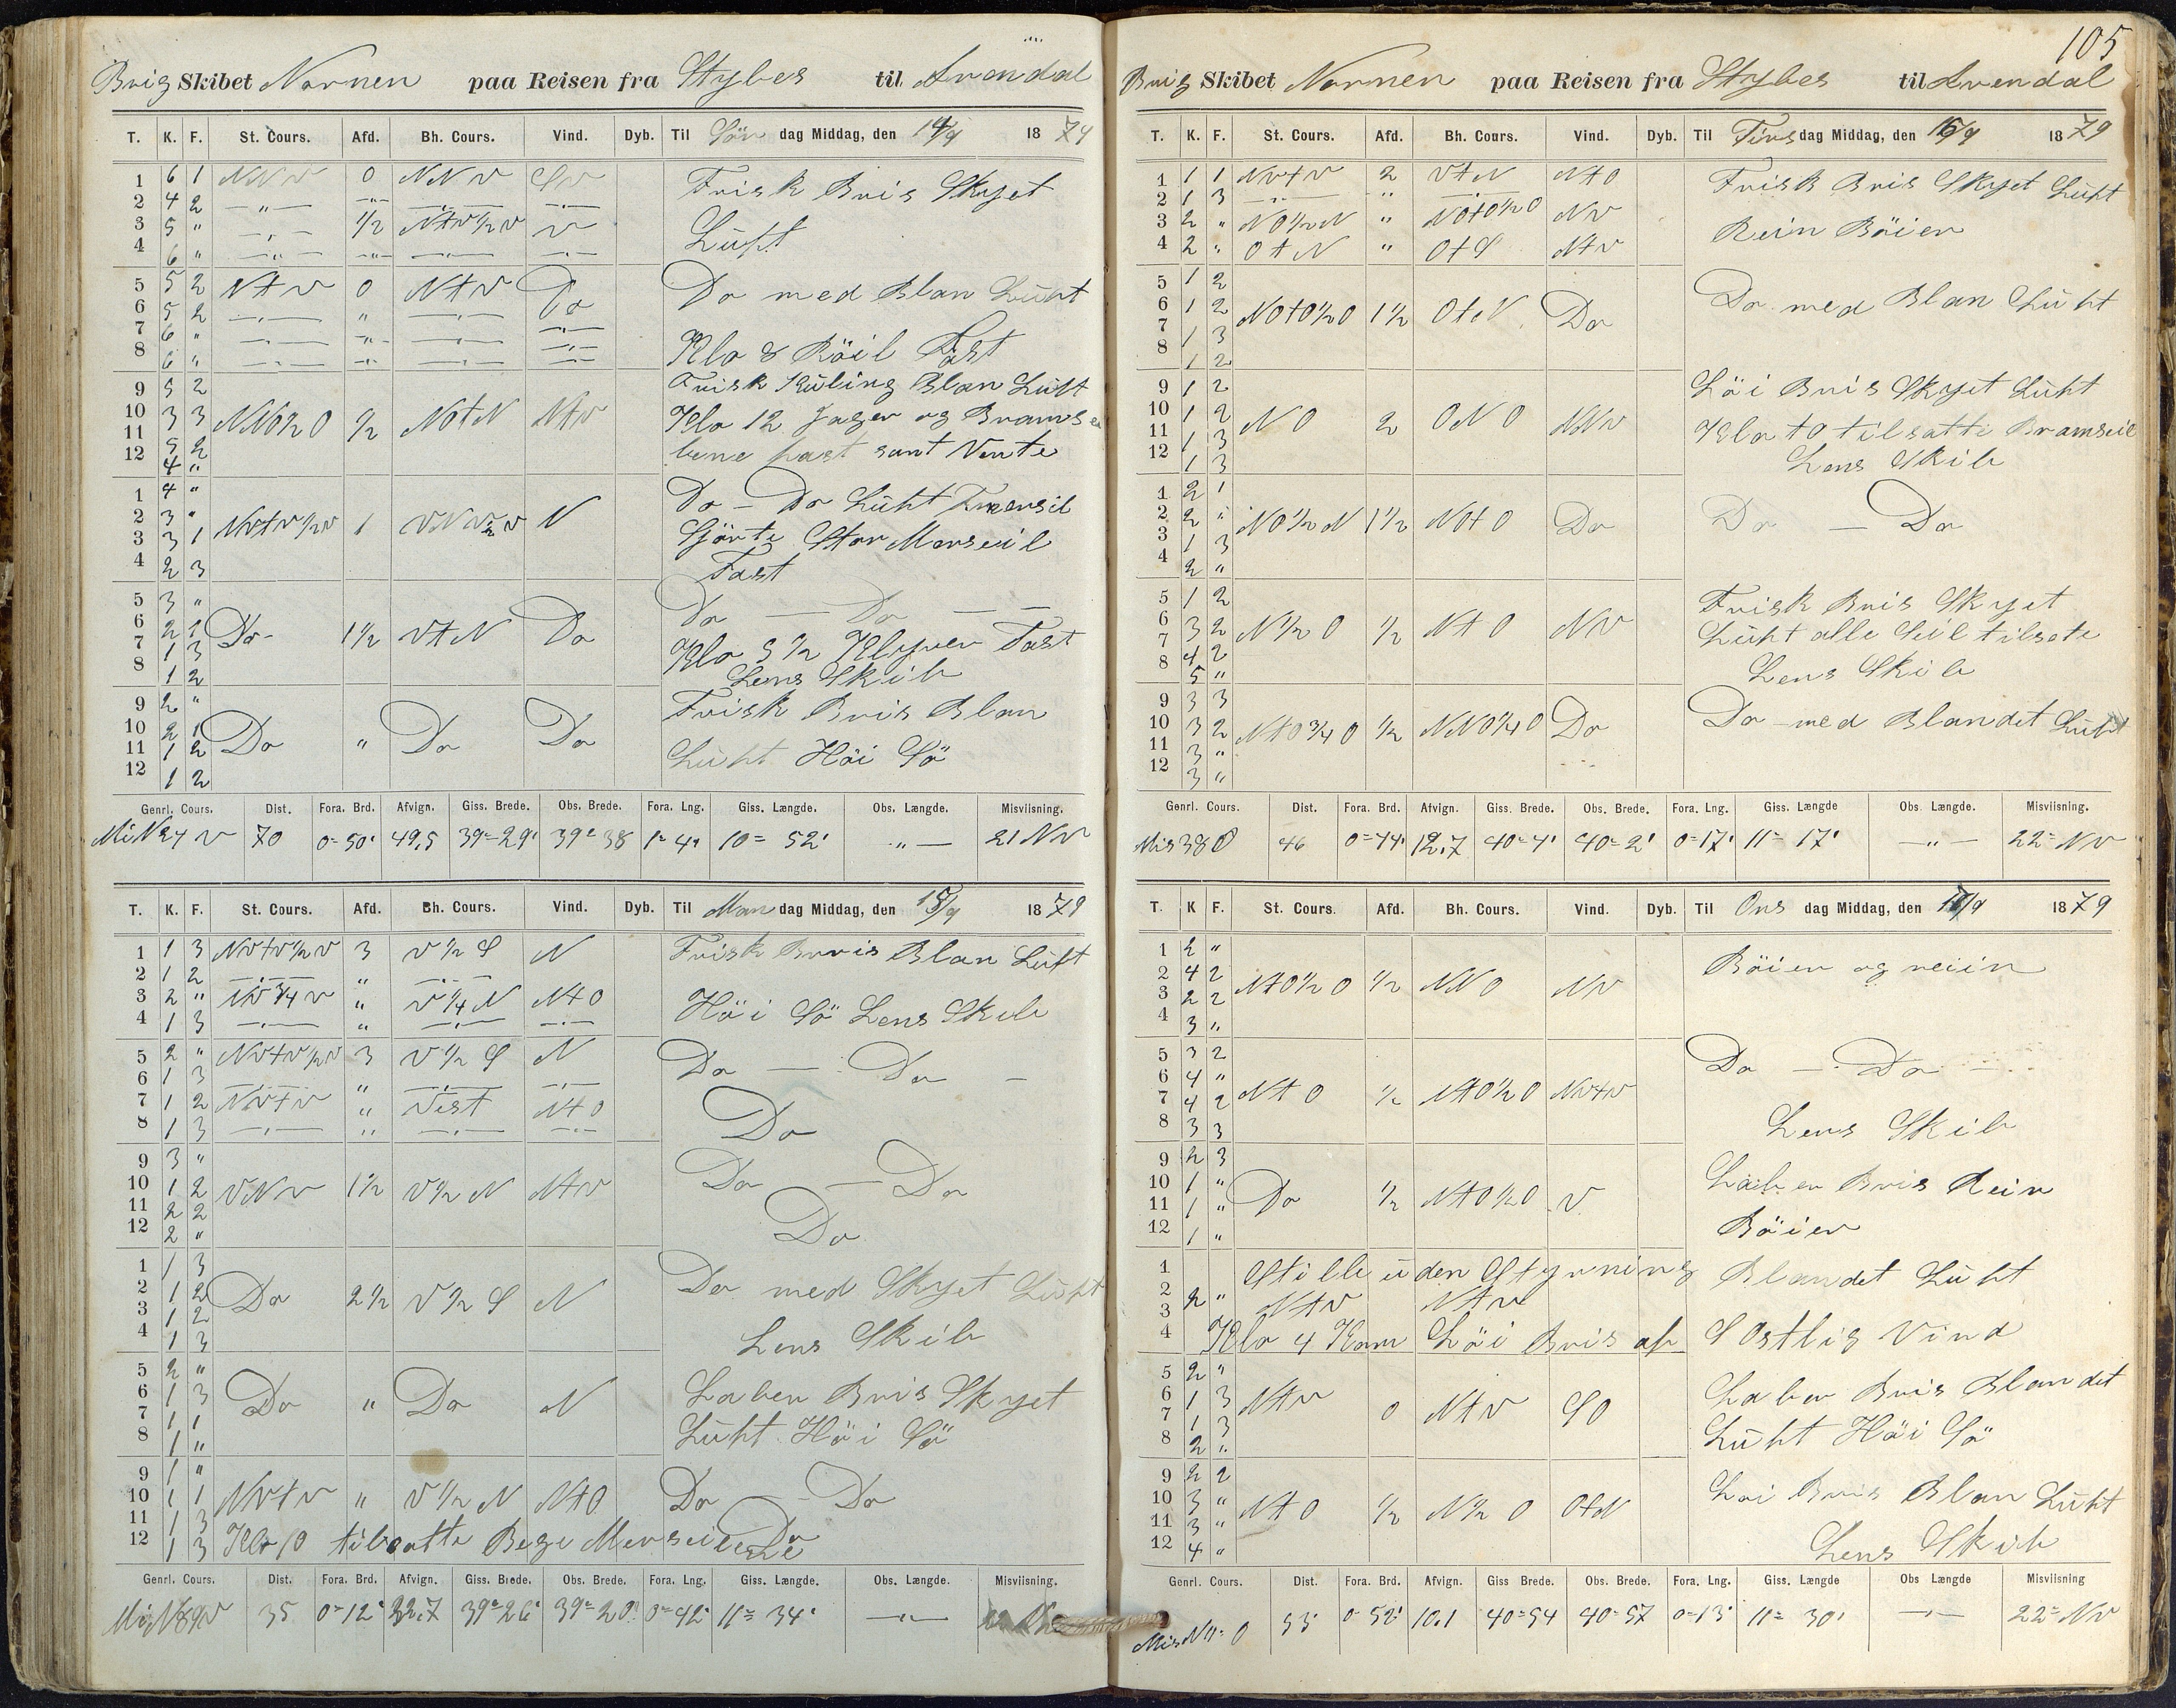 105
Brig Skibet Nornen paa Reisen fra Stybes til Arendal
T. K. F. St. Cours. Afd. Bh. Cours. Vind. Dyb. Til Sön dag Middag, den 14/9 1879
1 6 1 NNV 0 NNV SV Frisk Bris Skyet
2 4 2 —"— —"— —"— —"—
3 5 " —"— 1/2 NtV1/2V V Luft
4 6 " —"— —"— —"— —"—
5 5 2 NtV 0 NtV Do Do med Blan Luft
6 5 2 —"— " —"—
7 6 " —"— —"— —"— —"—
8 6 " —"— —"— —"— —"— Klo 8 Röil Fast
9 5 2 Frisk Kuling Blan Luft
10 3 3 NNO1/2O 1/2 NOtN NtV Klo 12 Jager og Bramse
11 5 2 lene fast samt Vente
12 4 "
1 4 " Do — Do Luft
2 3 " NVtV1/2V 1 VNV1/2V N
3 3 1 Gjörte Stor Merseil
4 2 3 Fast
5 3 " Do — Do — —
6 2 1 Do 1 1/2 VtN Do
7 1 3 Klo 5 1/2 Klyver Fast
8 1 2 Lens Skib
9 2 " Frisk Bris Blan
10 2 1 Do " Do Do
11 1 2 Luft Höi Sö
12 1 2
Genrl. Cours. Dist. Fora. Brd. Afvign. Giss. Brede. Obs. Brede. Fora. Lng. Giss. Længde. Obs. Længde. Misviisning.
70 0=50' 49,5 39°=29' 39° 38 1=4' 10= 52' —"— 21 NV
T. K. F. St. Cours. Afd. Bh. Cours. Vind. Dyb. Til Man dag Middag, den 15/9 1879
1 1 3 NVtV1/2V 3 V1/2S N Frisk Bris Blan Luft
2 1 2 —"— " —"—
3 2 " NV3/4V " V1/4N NtO Höi Sö Lens Skib
4 1 3 —"— " —"— —"—
5 2 " NVtV1/2V 3 V1/2S N Do — Do —
6 1 3 —"— " —"— —"—
7 1 2 NVtV " Vest NtO Do
8 1 3 —"— " —"— —"—
9 3 " Do — Do
10 1 2 VNV 1 1/2 V1/2N NtV
11 2 2 Do
12 2 "
1 1 3 Do med Skyet Luft
2 1 2 Do 2 1/2 V1/2S N
3 1 2
4 1 3 Lens Skib
5 2 " Laber Bris Skyet
6 1 3 Do " Do N
7 1 1 Luft Höi Sö
8 1 "
9 1 "
10 1 1 NVtV " V1/2N NtO Do — Do
11 1 3 Do
12 1 3 Klo 10 tilsatte Bege Merseilene
Genrl. Cours. Dist. Fora. Brd. Afvign. Giss. Brede. Obs. Brede. Fora. Lng. Giss. Længde. Obs. Længde. Misviisning.
35 0=12' 32,7 39°=26' 39°=20' 0=42' 11= 34' —"—
Brig Skibet Nornen paa Reisen fra Stybes til Arendal
T. K. F. St. Cours. Afd. Bh. Cours. Vind. Dyb. Til Tirs dag Middag, den 16/9 1879
1 1 1 NVtV 2 VtN NtO Frisk Bris Skyet Luft
2 1 3 —"— " —"—
3 2 " NO1/2N " NOtO1/2O NV Rein Böier
4 2 " OtN " OtS NtV
5 1 2 Do med Blan Luft
6 1 2 NOtO1/2O 1 1/2 OtN Do
7 1 3
8 1 2
9 1 2 Löi Bris Skyet Luft
10 1 2 NO 2 ONO NNV
11 1 3 Klo 10 tilsatte Bramseil
12 1 3 Lens Skib
1 2 1
2 2 " NO1/2N 1 1/2 NOtO Do Do — Do
3 1 3
4 2 "
5 1 2 Frisk Bris Skyet
6 3 2 N1/2O 1/2 NtO NV Luft alle Seil tilsate
7 4 2
8 5 " Lens Skib
9 3 3
10 3 2 NtO3/4O 1/2 NNO1/4O Do Do med Blandet Luft
11 3 "
12 3 "
Genrl. Cours. Dist. Fora. Brd. Afvign. Giss. Brede. Obs. Brede. Fora. Lng. Giss. Længde Obs. Længde. Misviisning.
46 0=44' 12,7 40°4' 40°=2' 0=17' 11= 17' —"— 22= NV
T. K F. St. Cours. Afd. Bh. Cours. Vind. Dyb. Til Ons dag Middag, den 17/9 1879
1 2 " Böier og reiin
2 4 2 NtO1/2O 1/2 NNO NV
3 2 2
4 3 "
5 3 2 Do — Do —
6 4 " NtO 1/2 NtO1/2O NVtV
7 4 2
8 3 3 Lens Skib
9 2 3 Laber Bris Rein
10 1 " Do 1/2 NtO1/2O V
11 1 " Böier
12 1 "
1 Stille uden Styrning Blandet Luft
2 2 " NtV NtV
3
4 Klo 4 Kom Löi Bris af S Ostlig Vind
5 2 " Laber Bris Blandet
6 1 3 NtV 0 NtV SO
7 1 3 Luft Höi Sö
8 2 "
9 2 2 Loi Bris Blan Luft
10 3 " NtO 1/2 N1/2O OtN
11 3 "
12 4 " Lens Skib
Genrl. Cours. Dist. Fora. Brd. Afvign. Giss Brede. Obs. Brede. Fora. Lng. Giss. Længde Obs Længde Misviisning
53' 0=52' 10,1 40=54 40=57 0=13' 11= 30' —"— 22= NV